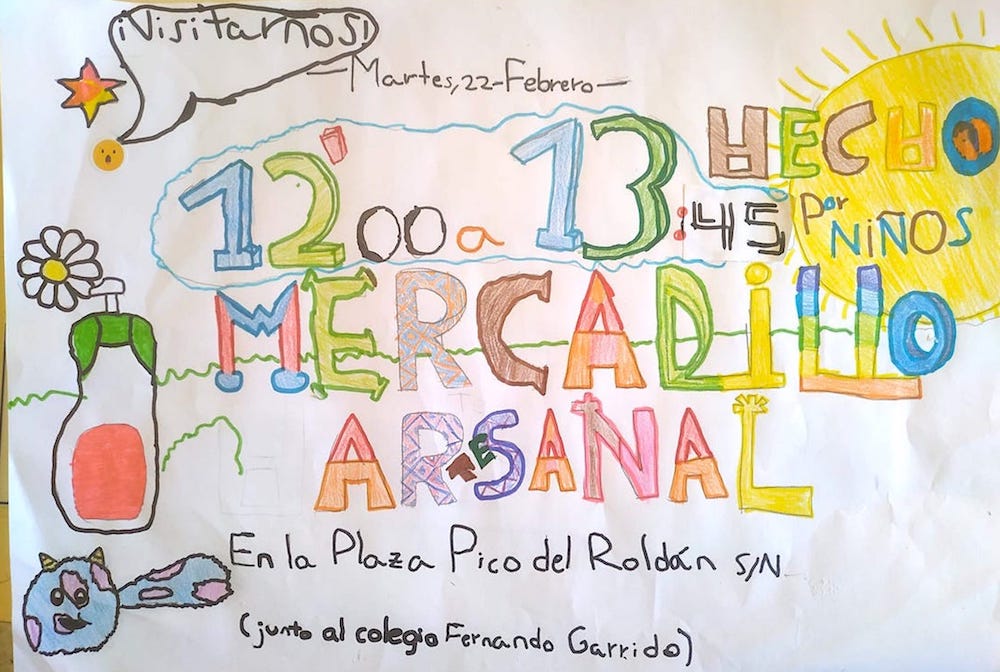 ¡Visitarnos!
—Martes, 22-Febrero—
HECHO
por NIÑOS
12 00 a 13:45
MERCADiLLO
ARTESANAL
En la Plaza Pico del Roldán S/N
(junto al colegio Fernando Garrido)